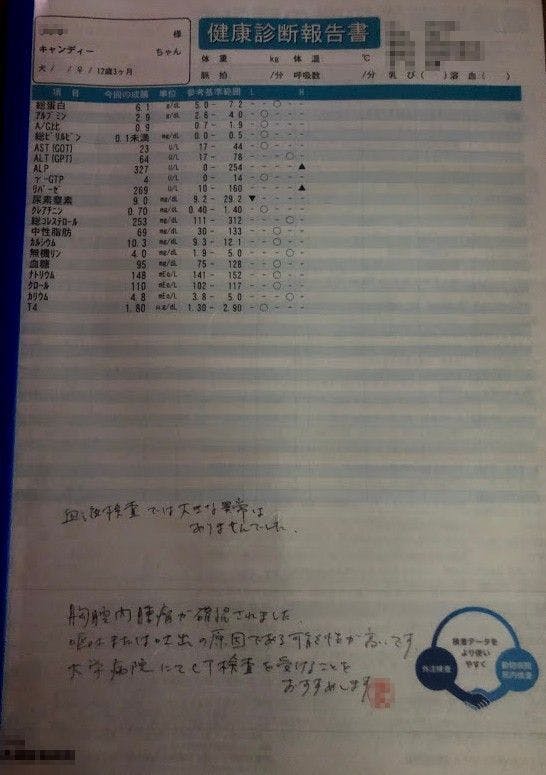 健康診断報告書
様
キャンディー ちゃん
犬 / / ♀ / 12歳3ヶ月
体 重 kg 体 温 ℃
脈 拍 /分 呼吸数 /分 乳 び ( ) 溶 血 ( )
項 目 今回の成績 単位 参考基準範囲 L H
総蛋白 6.1 g/dL 5.0 - 7.2 - - ○ - -
アルブミン 2.9 g/dL 2.6 - 4.0 - ○ - - -
A/G比 0.9 0.7 - 1.9 - ○ - - -
総ビリルビン 0.1未満 mg/dL 0.0 - 0.5 - ○ - - -
AST(GOT) 23 U/L 17 - 44 - ○ - - -
ALT(GPT) 64 U/L 17 - 78 - - - ○ -
ALP 327 U/L 0 - 254 - - - - ▲
γ-GTP 4 U/L 0 - 14 - ○ - - -
リパーゼ 269 U/L 10 - 160 - - - - ▲
尿素窒素 9.0 mg/dL 9.2 - 29.2 ▼ - - - -
クレアチニン 0.70 mg/dL 0.40 - 1.40 - ○ - - -
総コレステロール 253 mg/dL 111 - 312 - - - ○ -
中性脂肪 69 mg/dL 30 - 133 - - ○ - -
カルシウム 10.3 mg/dL 9.3 - 12.1 - - ○ - -
無機リン 4.0 mg/dL 1.9 - 5.0 - - - ○ -
血糖 95 mg/dL 75 - 128 - - ○ - -
ナトリウム 148 mEq/L 141 - 152 - - ○ - -
クロール 110 mEq/L 102 - 117 - - ○ - -
カリウム 4.8 mEq/L 3.8 - 5.0 - - - ○ -
T4 1.80 μg/dL 1.30 - 2.90 - ○ - - -
血液検査では大きな異常は
ありませんでした。
胸腔内腫瘤が確認されました。
嘔吐または吐出の原因である可能性が高いです。
大学病院にてCT検査を受けることを
おすすめします
検査データを
より使い
やすく
外注検査
動物病院
院内検査